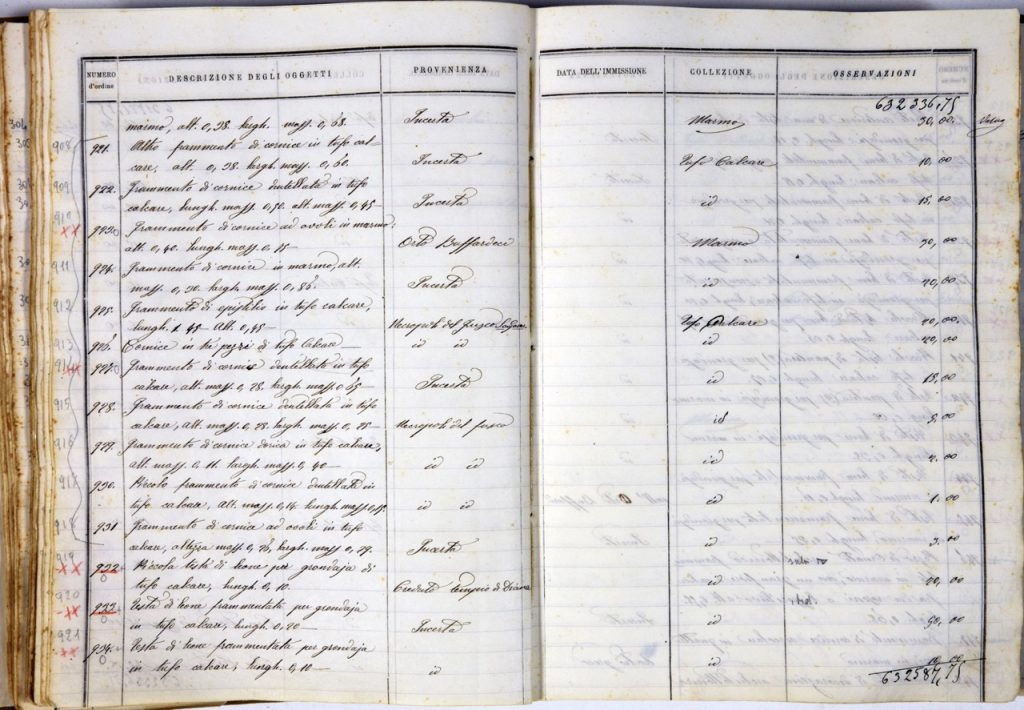 NUMERO d'ordine DESCRIZIONE DEGLI OGGETTI PROVENIENZA DATA DELL'IMMISSIONE COLLEZIONE OSSERVAZIONI
632336,75
marmo, alt. 0,38. largh. mass. 0,68. Incerta Marmo 30,00
921. Altro frammento di cornice in tufo cal-
care, alt. 0,38. largh. mass. 0,60. Incerta Tufo Calcare 10,00
922. Frammento di cornice dentellata in tufo
calcare, lungh. mass. 0,50. alt. mass. 0,45 Incerta id 15,00
923. Frammento di cornice ad ovoli in marmo,
alt. 0,40. lungh. mass. 0, Orto Buffardeci Marmo 30,00
924. Frammento di cornice in marmo, alt.
mass. 0,30. largh. mass. 0,86. Incerta id 20,00
925. Frammento di epistilio in tufo calcare,
lungh. 1,45 Alt. 0,45 Necropoli del Fusco Tufo Calcare 20,00
Cornice in tre pezzi di tufo Calcare id id id 20,00
Frammento di cornice dentellata in tufo
calcare, alt. mass. 0,28. largh. mass. 0,65 Incerta id 15,00
928. Frammento di cornice dentellata in tufo
calcare, alt. mass. 0,28 largh. mass. 0,25 Necropoli del fusco id 5,00
929. Frammento di cornice dorica in tufo calcare,
alt. mass. 0,11. largh. mass. 0,40 id id id 2,00
930. Piccolo frammento di cornice dentellata in
tufo calcare, Alt. mass. 0,14. lungh. mass. id id id 1,00
931 Frammento di cornice ad ovoli in tufo
calcare, altezza mass. largh. mass. 0,29. Incerta id 3,00
932 Piccola testa di leone per grondaja di
tufo calcare, lungh. 0,10. Creduto Tempio di Diana id
933. Testa di leone frammentata per grondaja
in tufo calcare, lungh. 0,20 Incerta id 50,00
934. Testa di leone frammentata per grondaja
in tufo calcare, lungh. 0,10 id id
632587,75
908
909
910
XX
911
912
913
914
915
916
917
918
919
XX
920
XX
921
XX